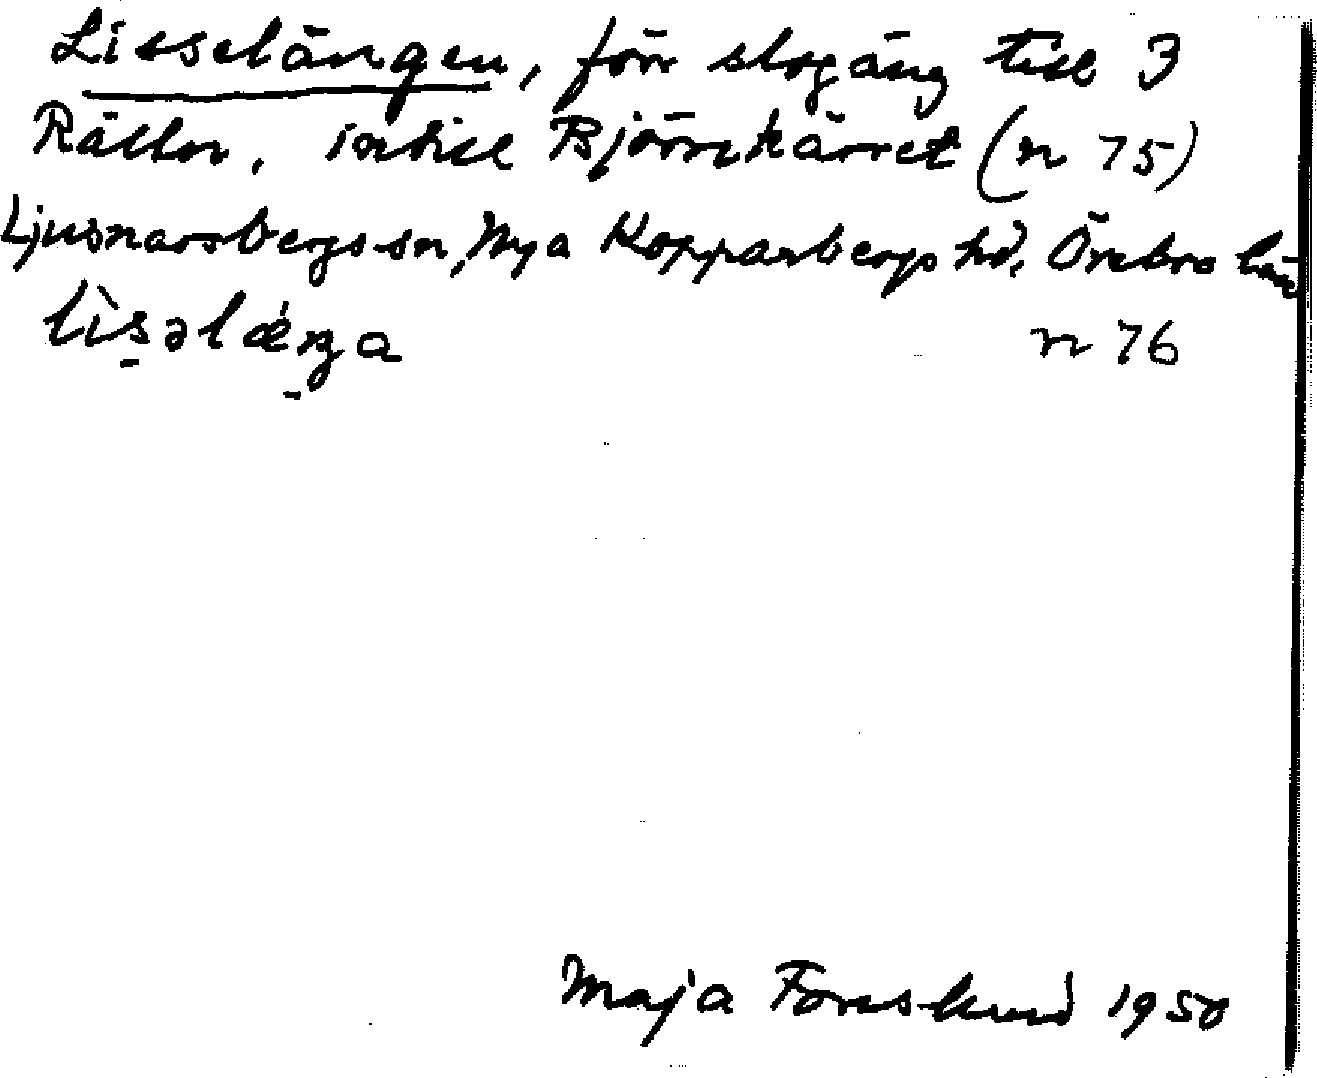 Lisselängen, förr slogäng till 3
Rällor, intill Björnkärret (n 75)
Ljusnarsbergs sn, Nya Kopparbergs hd, Örebro län
lìsəlǽŋa n 76
Maja Forslund 1950